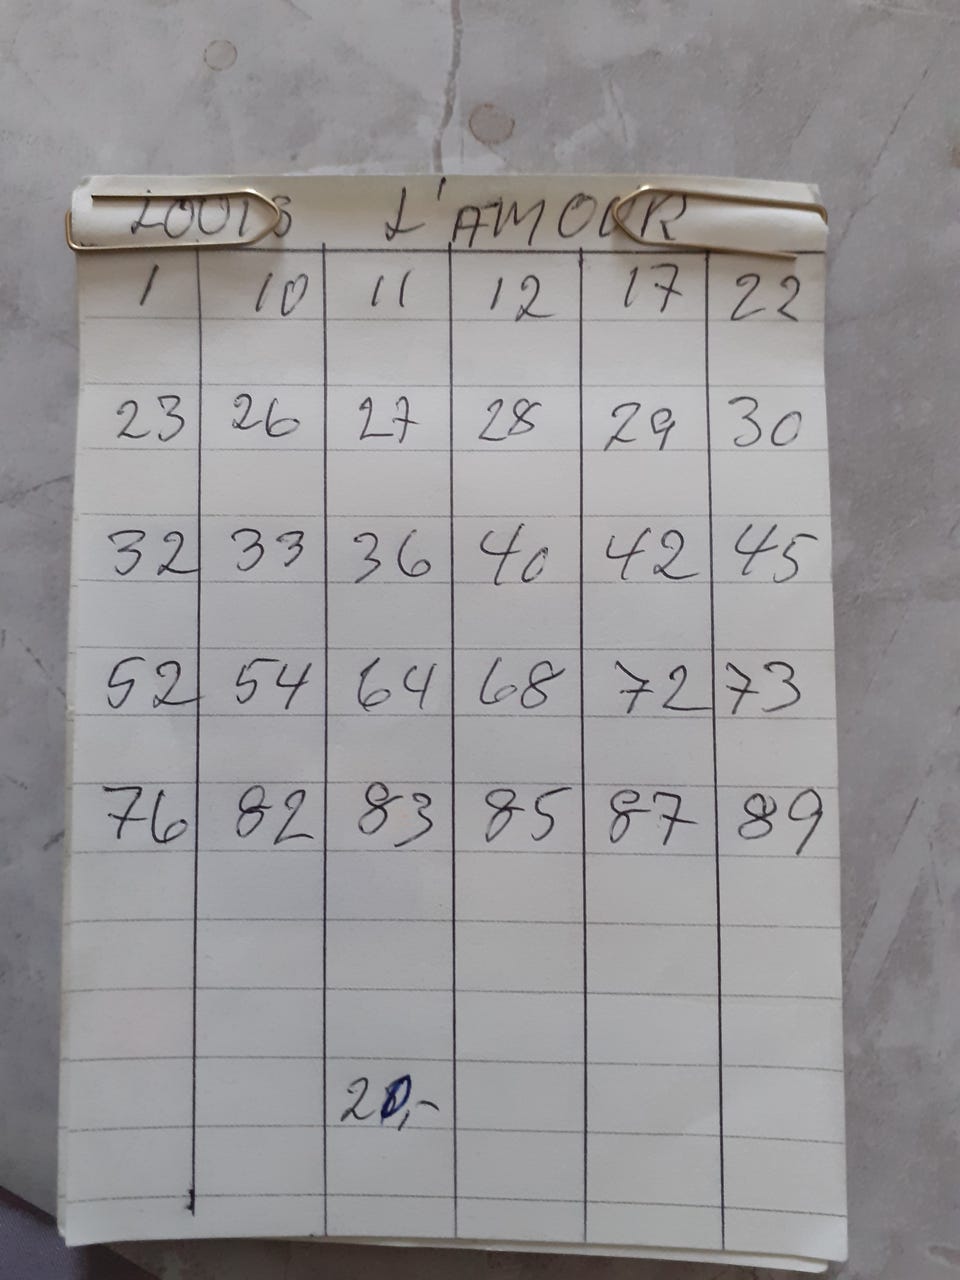 LOUIS L'AMOUR
1 10 11 12 17 22
23 26 27 28 29 30
32 33 36 40 42 45
52 54 64 68 72 73
76 82 83 85 87 89
20,-